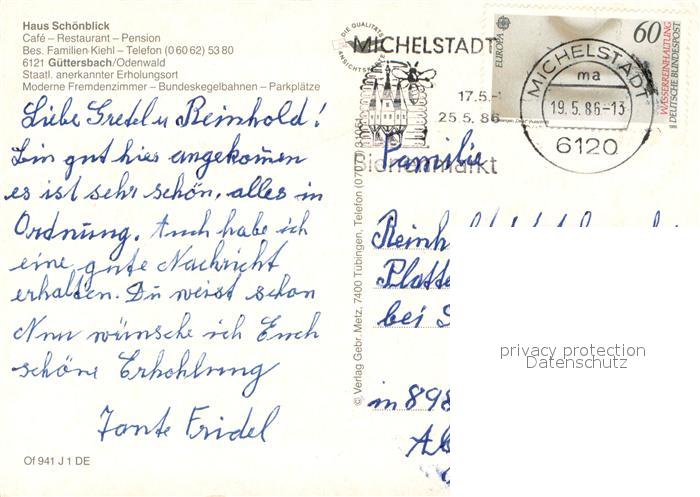 Haus Schönblick
Café – Restaurant – Pension
Bes. Familien Kiehl – Telefon (0 60 62) 53 80
6121 Güttersbach/Odenwald
Staatl. anerkannter Erholungsort
Moderne Fremdenzimmer – Bundeskegelbahnen – Parkplätze
Liebe Gretel u Reinhold!
Bin gut hier angekommen
es ist sehr schön, alles in
Ordnung. Auch habe ich
eine gute Nachricht
erhalten. Du weist schon
Nun wünsche ich Euch
schöne Erhohlung
Tante Fridel
Of 941 J 1 DE
© Verlag Gebr. Metz, 7400 Tübingen, Telefon (07071)
DIE QUALITÄTS
ANSICHTSKARTE
MICHELSTADT
17.5.-
25.5.86
markt
EUROPA
60
WASSERREINHALTUNG
DEUTSCHE BUNDESPOST
MICHELSTADT
ma
19.5.86-13
6120
Familie
Reinh
Platte
bei S
in 898
privacy protection
Datenschutz